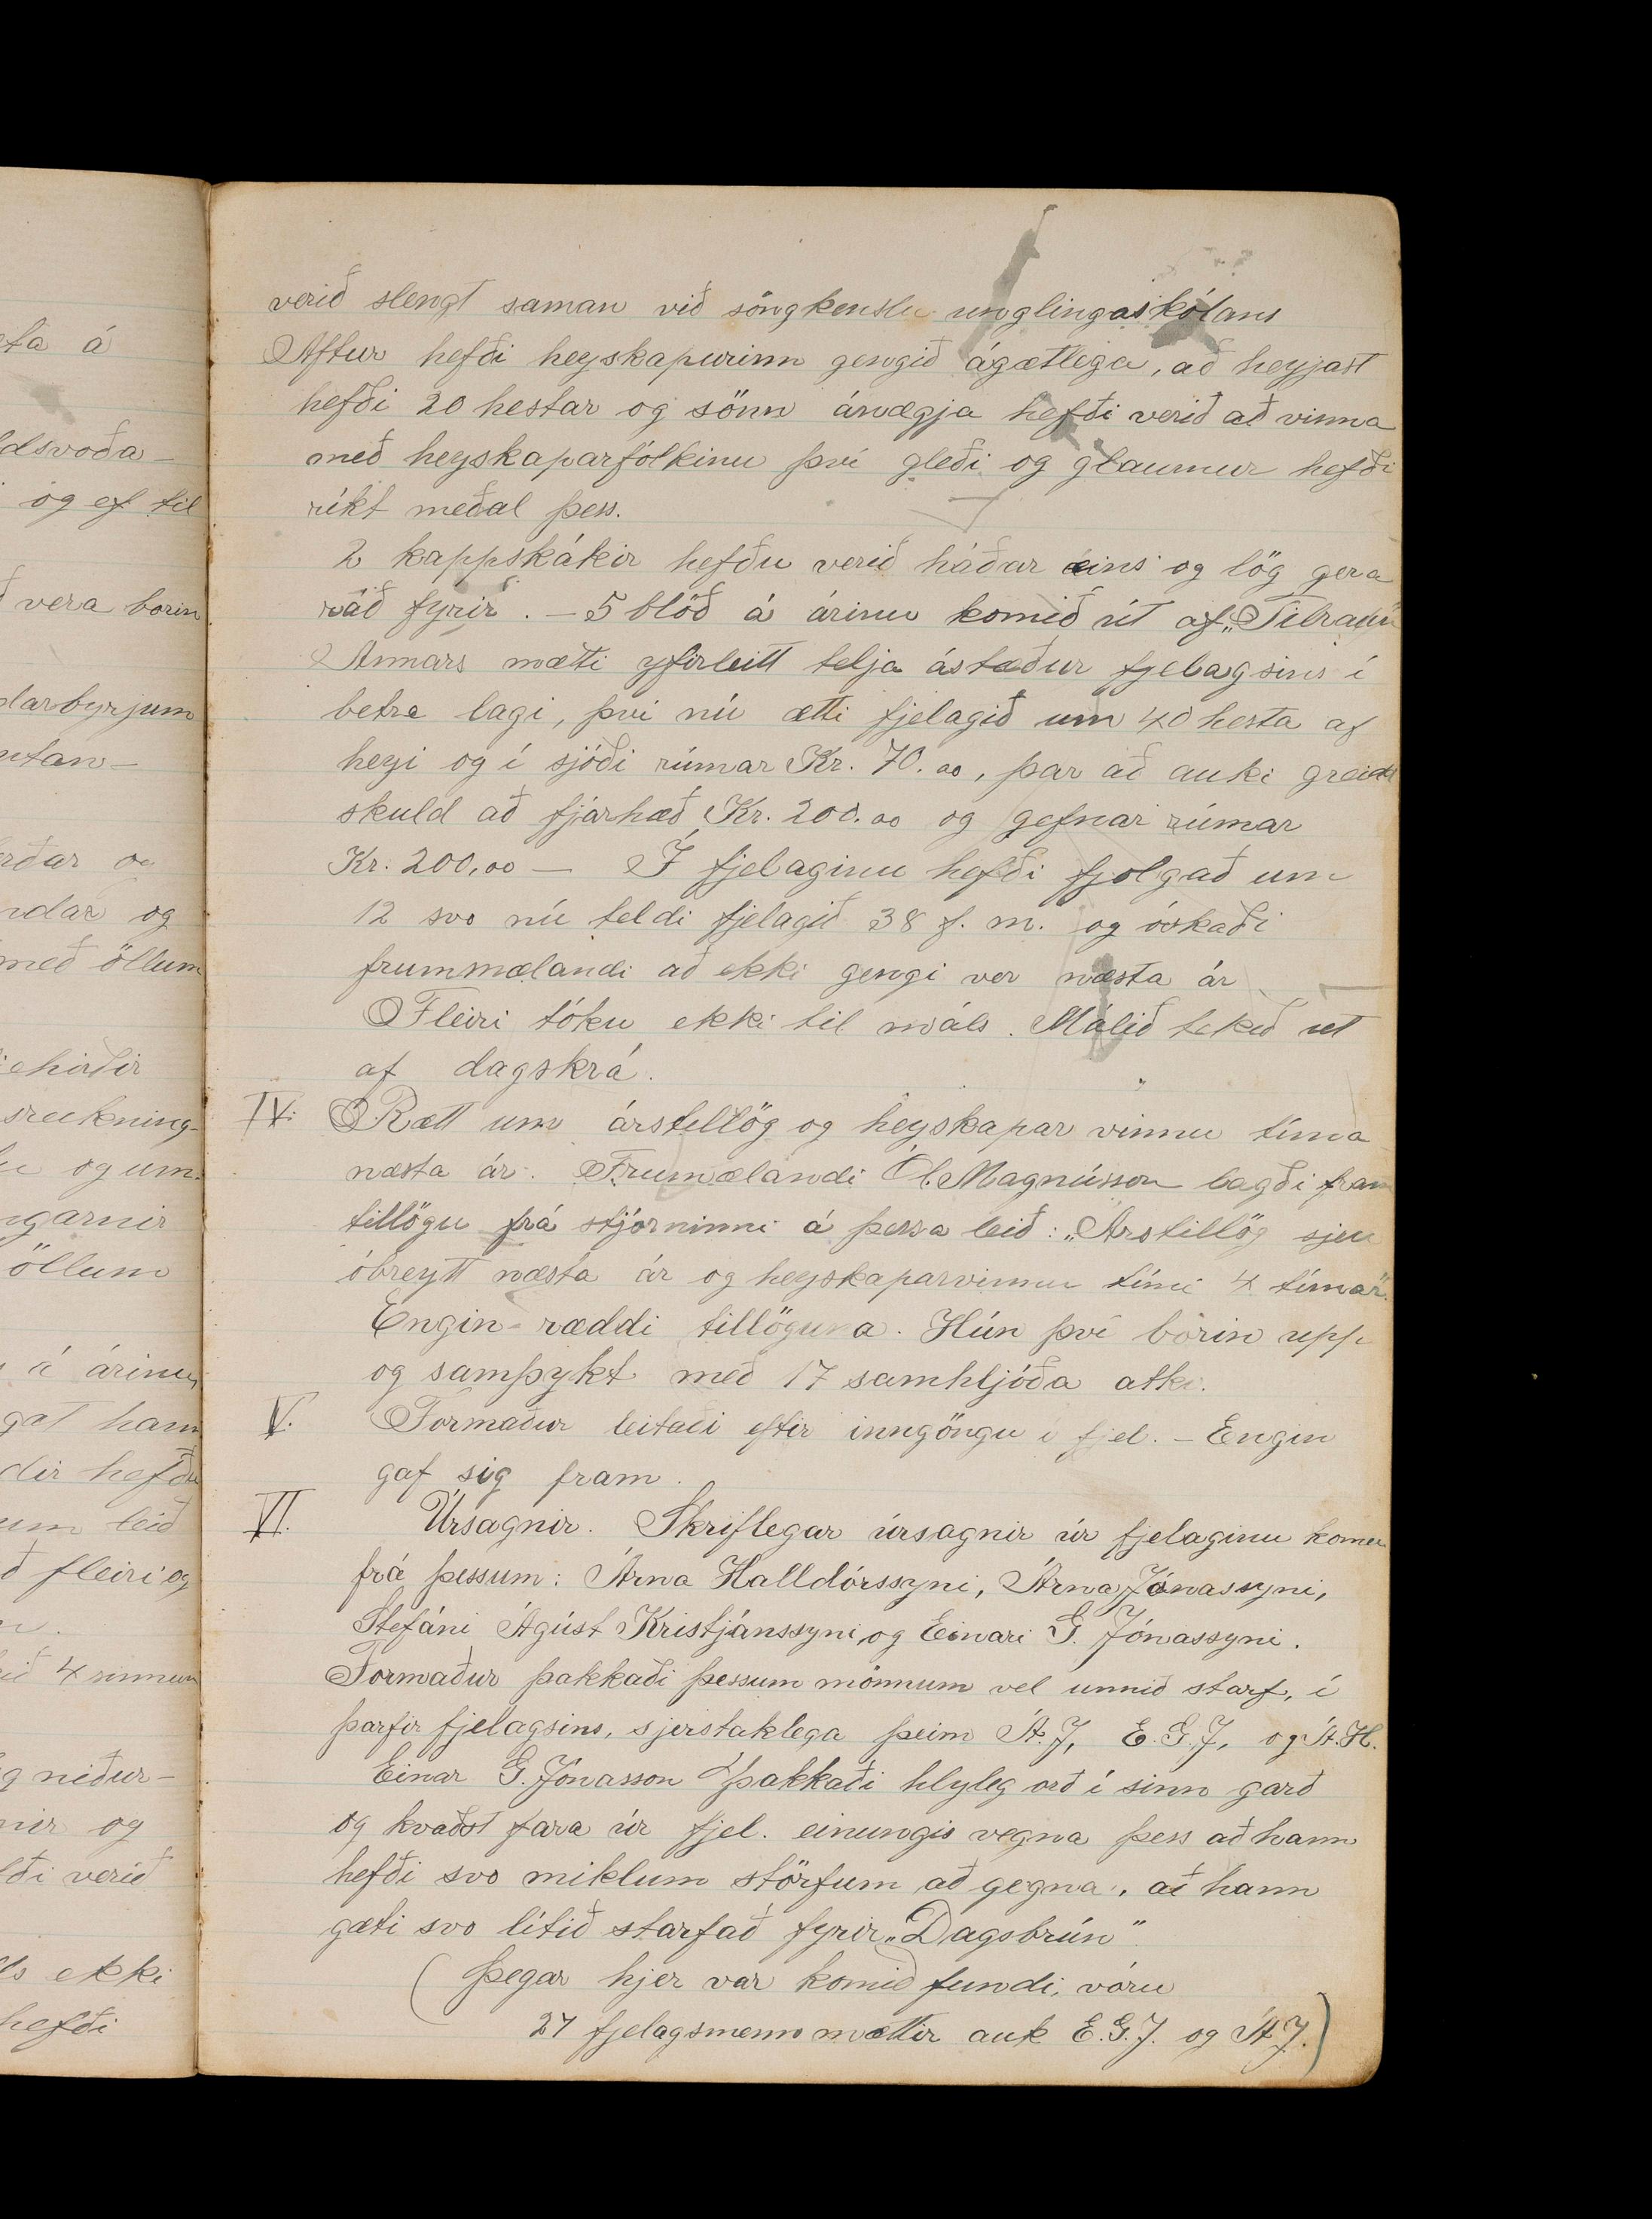 verið slengt saman við söngkenslu unglingaskólans
Aftur hefði heyskapurinn gengið ágætlega, að heyjast
hefði 20 hestar og sönn ánægja hefði verið að vinna
með heyskaparfólkinu því gleði og glaumur hefði
ríkt meðal þess.
2 kappskákir hefðu verið háðar eins og lög gera
ráð fyrir. - 5 blöð á árinu komið út af „Tilraun"
Annars mætti yfirleitt telja ástæður fjelagsins í
betra lagi, því nú ætti fjelagið um 40 hesta af
heyi og í sjóði rúmar Kr. 70.00, þar að auki greidd
skuld að fjárhæð Kr. 200.00 og gefnar rúmar
Kr. 200,00 - Í fjelaginu hefði fjölgað um
12 svo nú teldi fjelagið 38 f. m. og óskaði
frummælandi að ekki gengi ver næsta ár
Fleiri tóku ekki til máls. Málið tekið út
af dagskrá.
IV. Rætt um árstillög og heyskapar vinnu tíma
næsta ár. Frumælandi Ól. Magnússon lagði fram
tillögu frá stjórninni á þessa leið: „Árstillög sjeu
óbreytt næsta ár og heyskaparvinnu tími 4 tímar".
Engin ræddi tillöguna. Hún því borin upp
og samþykt með 17 samhljóða atkv.
V. Formaður leitaði eftir inngöngu í fjel. - Engin
gaf sig fram.
VI. Úrsagnir. Skriflegar úrsagnir úr fjelaginu komu
frá þessum: Árna Halldórssyni, Árna Jónassyni,
Stefáni Ágúst Kristjánssyni, og Einari G. Jónassyni.
Formaður þakkaði þessum mönnum vel unnið starf, í
þarfir fjelagsins, sjerstaklega þeim Á. J, E. G. J, og Á. H.
Einar G. Jónasson þakkaði hlýleg orð í sinn garð
og kvaðst fara úr fjel. einungis vegna þess að hann
hefði svo miklum störfum að gegna, að hann
gæti svo lítið starfað fyrir „Dagsbrún"
(Þegar hjer var komið fundi, vóru
27 fjelagsmenn mættir auk E. G. J. og Á J.)
eta á
ldsvoða-
og ef til
vera borin
darbyrjum
ntan-
erðar og
ndar og
með öllum
jehirðir
sreikning-
og um-
ngarnir
öllum
á árinu,
gat hann
dir hefðu
um leið
ð fleiri og
4 sinnum
niður-
nir og
ði verið
ls ekki
hefði